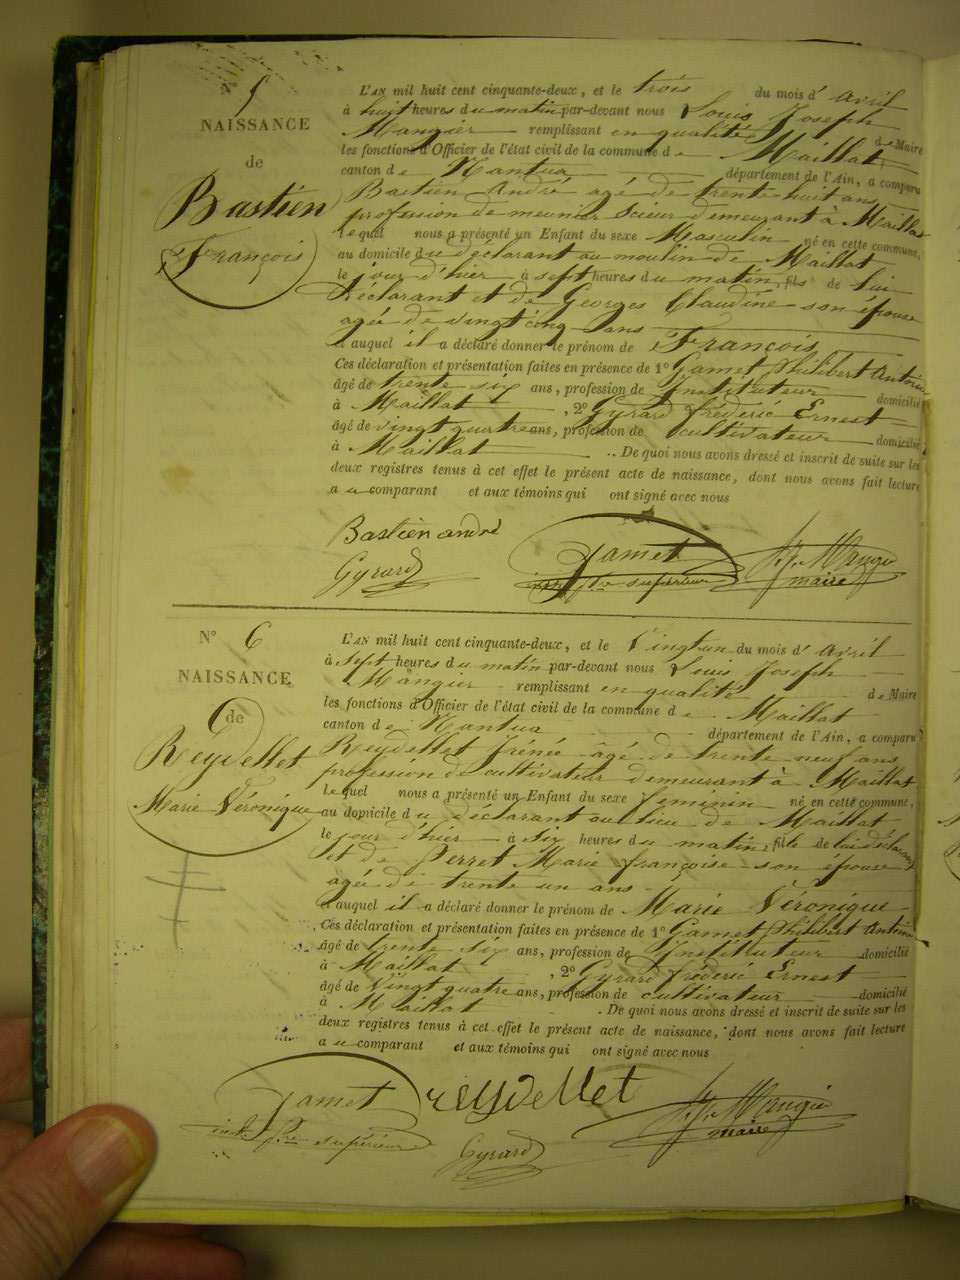 N° 5
NAISSANCE
de
Bastien
François
L'AN mil huit cent cinquante-deux, et le trois du mois d' avril
à huit heures du matin par-devant nous Louis Joseph
Mangier remplissant en qualité de Maire
les fonctions d'Officier de l'état civil de la commune de Maillat
canton de Nantua département de l'Ain, a comparu
Bastien André agé de trente huit ans
profession de meunier scieur demeurant à Maillat
lequel nous a présenté un Enfant du sexe Masculin né en cette commune,
au domicile du déclarant au moulin de Maillat
le jour d'hier à sept heures du matin, fils de lui
déclarant et de Georges Claudine son épouse
agée de vingt cinq ans
et auquel il a déclaré donner le prénom de François
Ces déclaration et présentation faites en présence de 1° Gamet Philibert Antoine
âgé de trente six ans, profession de Instituteur domicilié
à Maillat, 2° Gyrard frédéric Ernest
âgé de vingt quatre ans, profession de cultivateur domicilié
à Maillat . De quoi nous avons dressé et inscrit de suite sur les
deux registres tenus à cet effet le présent acte de naissance, dont nous avons fait lecture
au comparant et aux témoins qui ont signé avec nous
Bastien andré
Gamet
Gyrard
maire
N° 6
NAISSANCE
de
Reydellet
Marie Véronique
L'AN mil huit cent cinquante-deux, et le Vingt un du mois d' avril
à sept heures du matin par-devant nous Louis Joseph
Mangier remplissant en qualité de Maire
les fonctions d'Officier de l'état civil de la commune de Maillat
canton de Nantua département de l'Ain, a comparu
Reydellet frénée âgé de trente neuf ans
profession de cultivateur demeurant à Maillat
lequel nous a présenté un Enfant du sexe feminin né en cette commune,
au domicile du declarant au lieu de Maillat
le jour d'hier à six heures du matin, fille de lui déclarant
et de Perret Marie françoise son épouse
agée de trente un ans
et auquel il a déclaré donner le prénom de Marie Véronique
Ces déclaration et présentation faites en présence de 1° Gamet Philibert Antoine
âgé de trente six ans, profession de Instituteur domicilié
à Maillat, 2° Gyrard frédéric Ernest
âgé de Vingt quatre ans, profession de cultivateur domicilié
à Maillat . De quoi nous avons dressé et inscrit de suite sur les
deux registres tenus à cet effet le présent acte de naissance, dont nous avons fait lecture
au comparant et aux témoins qui ont signé avec nous
Gamet reydellet
Gyrard
maire